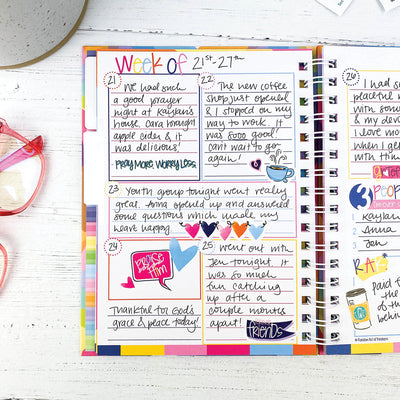 Week of 21st-27th
21
We had such
a good prayer
night at Kaylan's
house. Cara brought
apple cider & it
was delicious!
PRAY MORE, WORRY LESS
22
The new coffee
shop just opened
& I stopped on my
way to work. It
was sooo good!
Can't wait to go
again!
23
Youth group tonight went really
great. Anna opened up and answered
some questions which made my
heart happy.
24
PRAISE
Him
Thankful to God's
grace & peace today!
25
Went out with
Jen tonight. It
was so much
fun catching
up after a
couple months
apart!
friends
26
I had
peaceful
with
& my
I love
when I get
with
3 PEOP
Kaylan
Anna
Jen
Paid
of the
behin